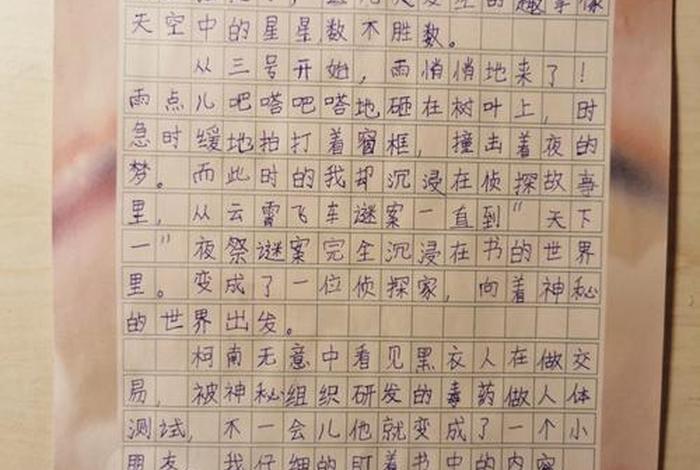 的趣事像
天空中的星星数不胜数。
从三号开始，雨悄悄地来了！
雨点儿吧嗒吧嗒地砸在树叶上，时
急时缓地拍打着窗框，撞击着夜的
梦。而此时的我却沉浸在侦探故事
里，从云霄飞车谜案一直到“天下
一”夜祭谜案完全沉浸在书的世界
里。变成了一位侦探家，向着神秘
的世界出发。
柯南无意中看见黑衣人在做交
易，被神秘组织研发的毒药做人体
测试，不一会儿他就变成了一个小
朋友。我仔细的盯着书中的内容